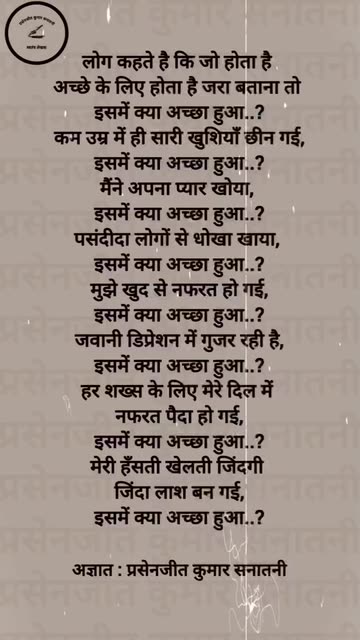 प्रसेनजीत कुमार सनातनी
स्वतंत्र लेखक
लोग कहते है कि जो होता है
अच्छे के लिए होता है जरा बताना तो
इसमें क्या अच्छा हुआ..?
कम उम्र में ही सारी खुशियाँ छीन गई,
इसमें क्या अच्छा हुआ..?
मैंने अपना प्यार खोया,
इसमें क्या अच्छा हुआ..?
पसंदीदा लोगों से धोखा खाया,
इसमें क्या अच्छा हुआ..?
मुझे खुद से नफरत हो गई,
इसमें क्या अच्छा हुआ..?
जवानी डिप्रेशन में गुजर रही है,
इसमें क्या अच्छा हुआ..?
हर शख्स के लिए मेरे दिल में
नफरत पैदा हो गई,
इसमें क्या अच्छा हुआ..?
मेरी हँसती खेलती जिंदगी
जिंदा लाश बन गई,
इसमें क्या अच्छा हुआ..?
अज्ञात : प्रसेनजीत कुमार सनातनी